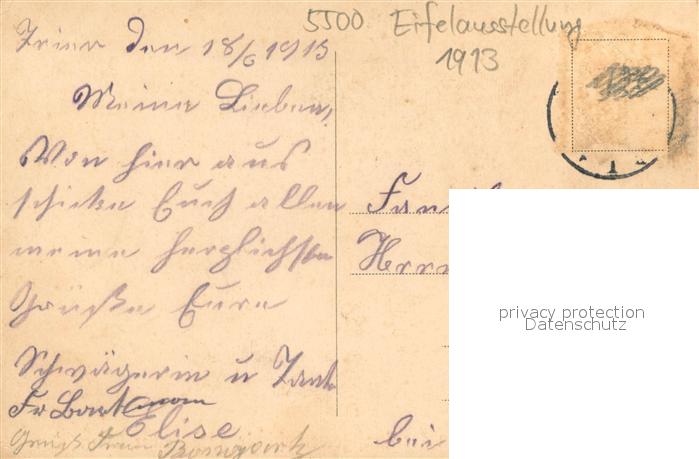 5500 Eifelausstellung
1913
Trier den 18/6 1913
Meine Lieben,
Von hier aus
schicke Euch allen
meine herzlichsten
Grüße Eure
Schwägerin u Tante
Elise
Fr
Gruß Frau
Fam
Herrn
bei
privacy protection
Datenschutz